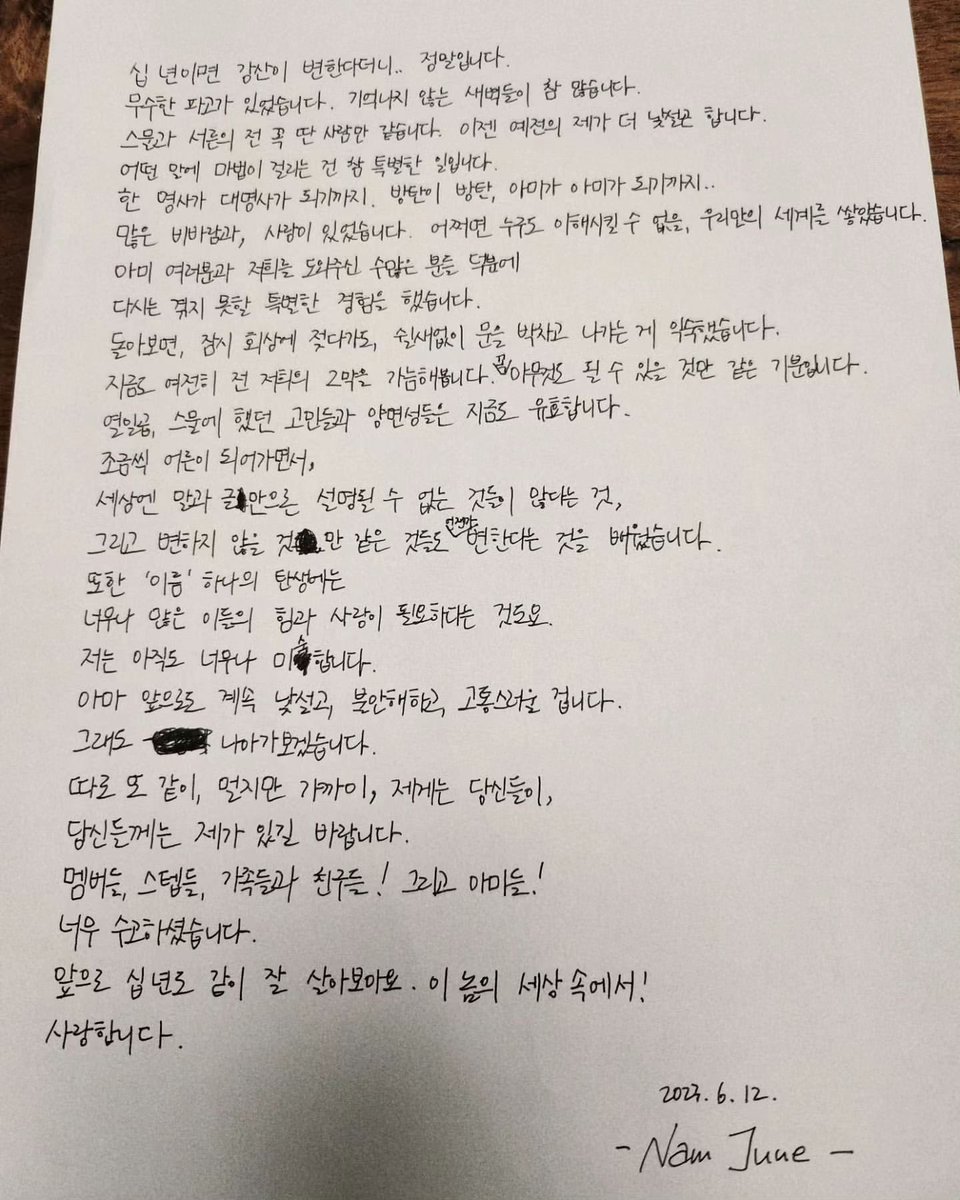 십 년이면 강산이 변한다더니.. 정말입니다.
무수한 파고가 있었습니다. 기억나지 않는 새벽들이 참 많습니다.
스물과 서른의 전 꼭 딴 사람만 같습니다. 이젠 예전의 제가 더 낯설곤 합니다.
어떤 말에 마법이 걸리는 건 참 특별한 일입니다.
한 명사가 대명사가 되기까지. 방탄이 방탄, 아미가 아미가 되기까지..
많은 비바람과, 사랑이 있었습니다. 어쩌면 누구도 이해시킬 수 없을, 우리만의 세계를 쌓았습니다.
아미 여러분과 저희를 도와주신 수많은 분들 덕분에
다시는 겪지 못할 특별한 경험을 했습니다.
돌아보면, 잠시 회상에 젖다가도, 쉴새없이 문을 박차고 나가는 게 익숙했습니다.
지금도 여전히 전 저희의 2막을 가늠해봅니다. 꼭 아무것도 될 수 있을 것만 같은 기분입니다.
열일곱, 스물에 했던 고민들과 양면성들은 지금도 유효합니다.
조금씩 어른이 되어가면서,
세상엔 말과 글만으론 설명될 수 없는 것들이 많다는 것,
그리고 변하지 않을 것만 같은 것들도 언젠가 변한다는 것을 배웠습니다.
또한 '이름' 하나의 탄생에는
너무나 많은 이들의 힘과 사랑이 필요하다는 것도요.
저는 아직도 너무나 미숙합니다.
아마 앞으로도 계속 낯설고, 불안해하고, 고통스러울 겁니다.
그래도 나아가보겠습니다.
따로 또 같이, 멀지만 가까이, 제게는 당신들이,
당신들께는 제가 있길 바랍니다.
멤버들, 스텝들, 가족들과 친구들! 그리고 아미들!
너무 수고하셨습니다.
앞으로 십 년도 같이 잘 살아보아요. 이 놈의 세상 속에서!
사랑합니다.
2023.6.12.
- Nam June -